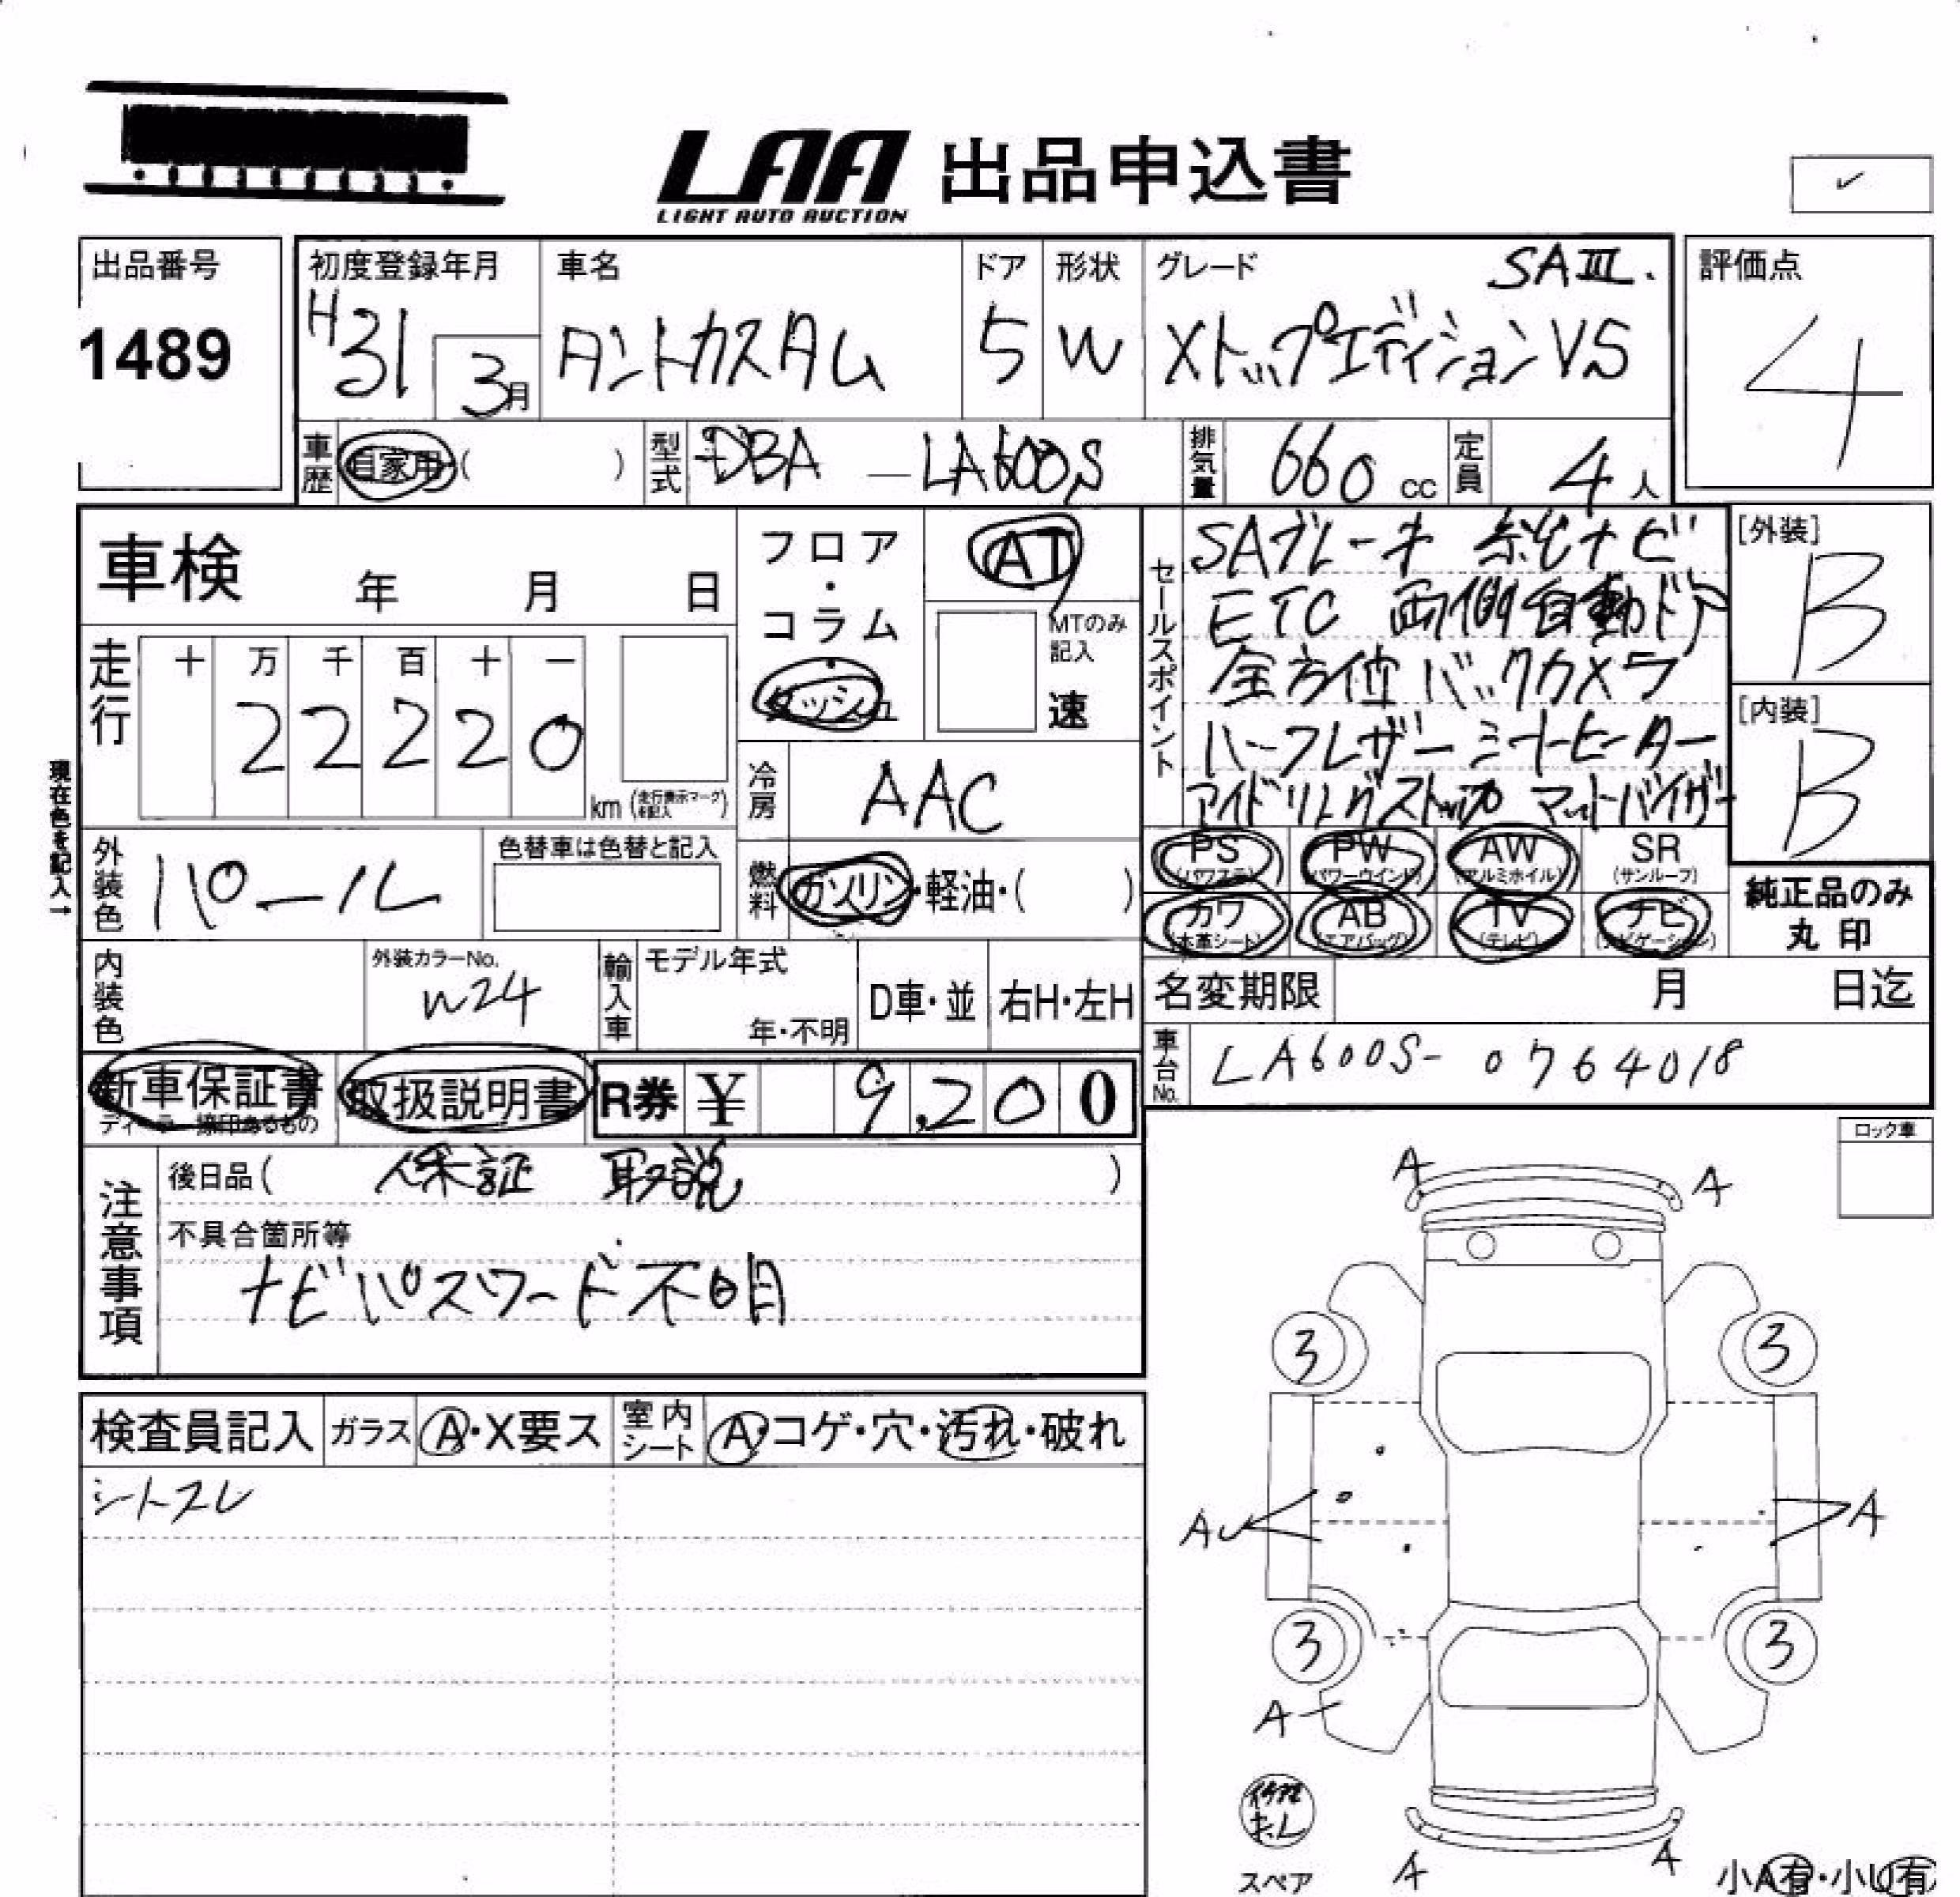 LAA 出品申込書
LIGHT AUTO AUCTION
✓
出品番号
1489
初度登録年月
H31 3月
車名
タントカスタム
ドア
5
形状
W
グレード SAⅢ.
XトップエディションVS
評価点
4
車歴 自家用( )
型式 DBA-LA600S
排気量 660 cc
定員 4人
車検 年 月 日
フロア・コラム・ダッシュ
AT
MTのみ記入
速
セールスポイント
SAブレーキ 純ナビ
ETC 両側自動ドア
全方位バックカメラ
ハーフレザーシートヒーター
アイドリングストップ マットバイザー
[外装]
B
[内装]
B
走行
十 万 千 百 十 一
22220
km (走行表示マーク未記入)
冷房 AAC
現在色を記入→
外装色 パール
色替車は色替と記入
燃料 ガソリン・軽油・( )
PS (パワステ)
PW (パワーウインド)
AW (アルミホイル)
SR (サンルーフ)
カワ (本革シート)
AB (エアバッグ)
TV (テレビ)
ナビ (ナビゲーション)
純正品のみ
丸印
内装色
外装カラーNo.
W24
輸入車
モデル年式
年・不明
D車・並
右H・左H
名変期限 月 日迄
車台No. LA600S-0764018
新車保証書
取扱説明書
R券 ¥ 9,200
注意事項
後日品( 保証 取説 )
不具合箇所等
ナビパスワード不明
ロック車
検査員記入
ガラス A・X要ス
室内シート A・コゲ・穴・汚れ・破れ
シートスレ
A A
3 3
AU A
3 3
A
スペア
A A
小A有・小U有